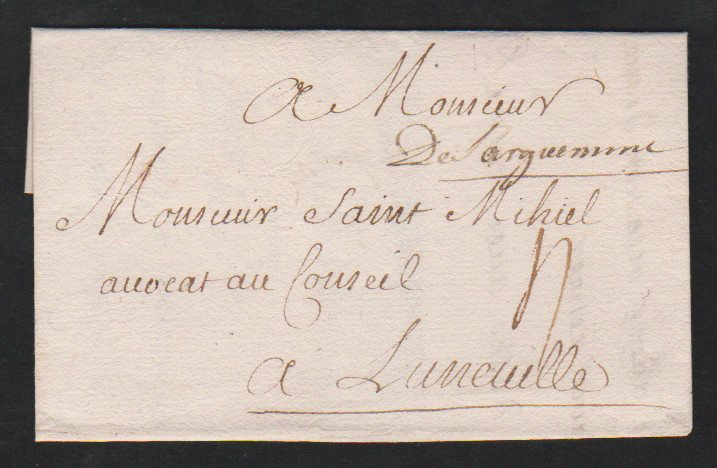 A Monsieur
De Sarguemine
Monsieur Saint Mihiel
auvocat au Conseil
a Luneuille